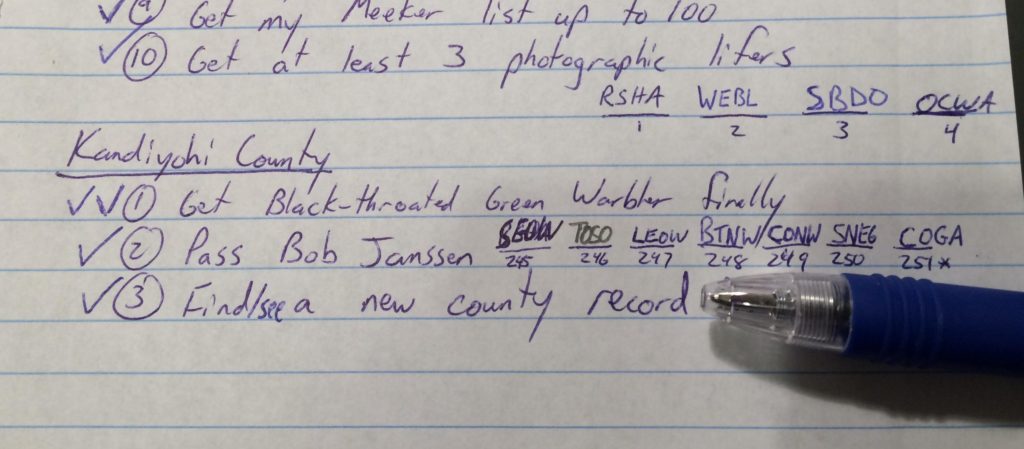 ✓✓ 9 Get my Meeker list up to 100
✓ 10 Get at least 3 photographic lifers
RSHA WEBL SBDO OCWA
1 2 3 4
Kandiyohi County
✓✓ 1 Get Black-throated Green Warbler finally
✓ 2 Pass Bob Janssen SEOW TOSO LEOW BTNW CONW SNEG COGA
245 246 247 248 249 250 251*
✓ 3 Find/see a new county record